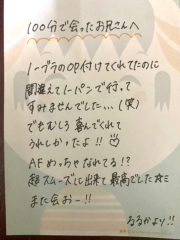 100分で会ったお兄さんへ
ノーブラのOP付けてくれてたのに
間違えてノーパンで行って
すみませんでした…(笑)
でもむしろ喜んでくれて
うれしかったよ!!
AFめっちゃなれてる!?
超スムーズに出来て最高でした☆ミ
また会おー!!
るるかより!!